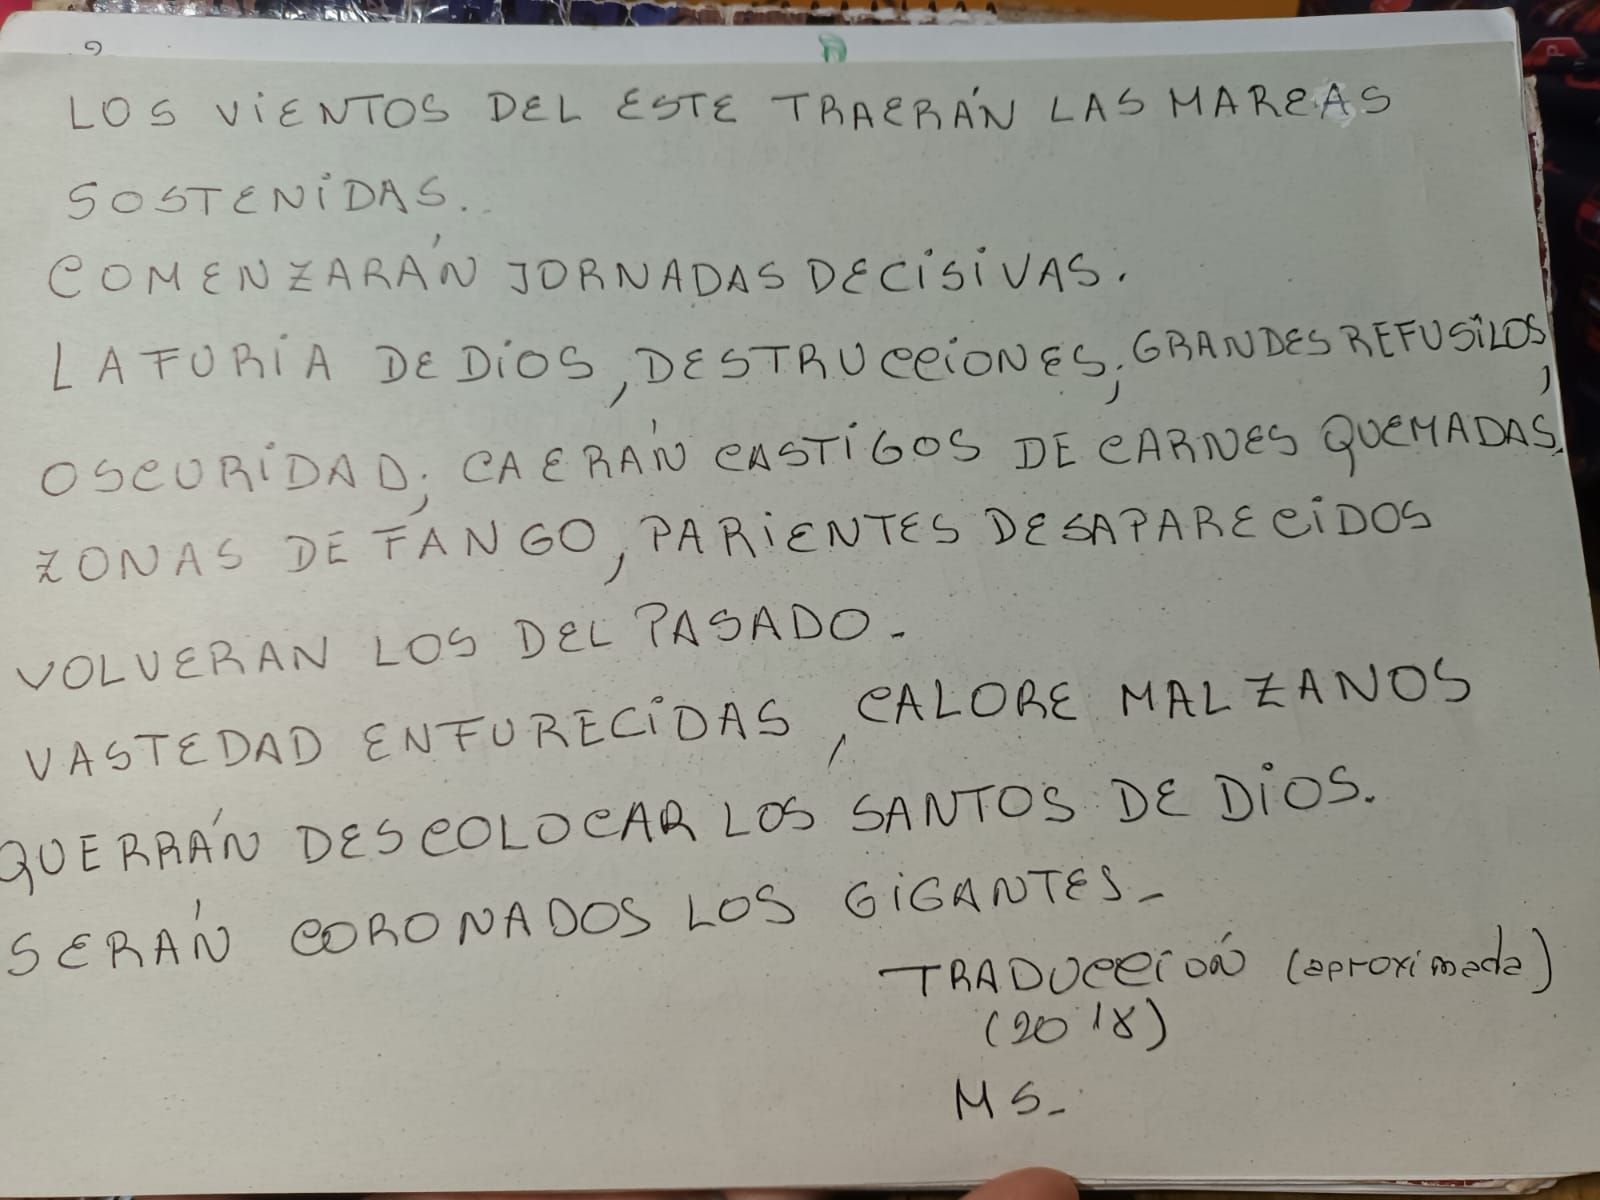 LOS VIENTOS DEL ESTE TRAERÁN LAS MAREAS
SOSTENIDAS.
COMENZARÁN JORNADAS DECISIVAS.
LA FURIA DE DIOS, DESTRUCCIONES; GRANDES REFUSILOS,
OSCURIDAD; CAERÁN CASTIGOS DE CARNES QUEMADAS.
ZONAS DE FANGO, PARIENTES DESAPARECIDOS
VOLVERAN LOS DEL PASADO.-
VASTEDAD ENFURECIDAS, CALORE MALZANOS
QUERRÁN DESCOLOCAR LOS SANTOS DE DIOS.
SERÁN CORONADOS LOS GIGANTES-
TRADUCCIÓN (aproximada)
(2018)
MS-